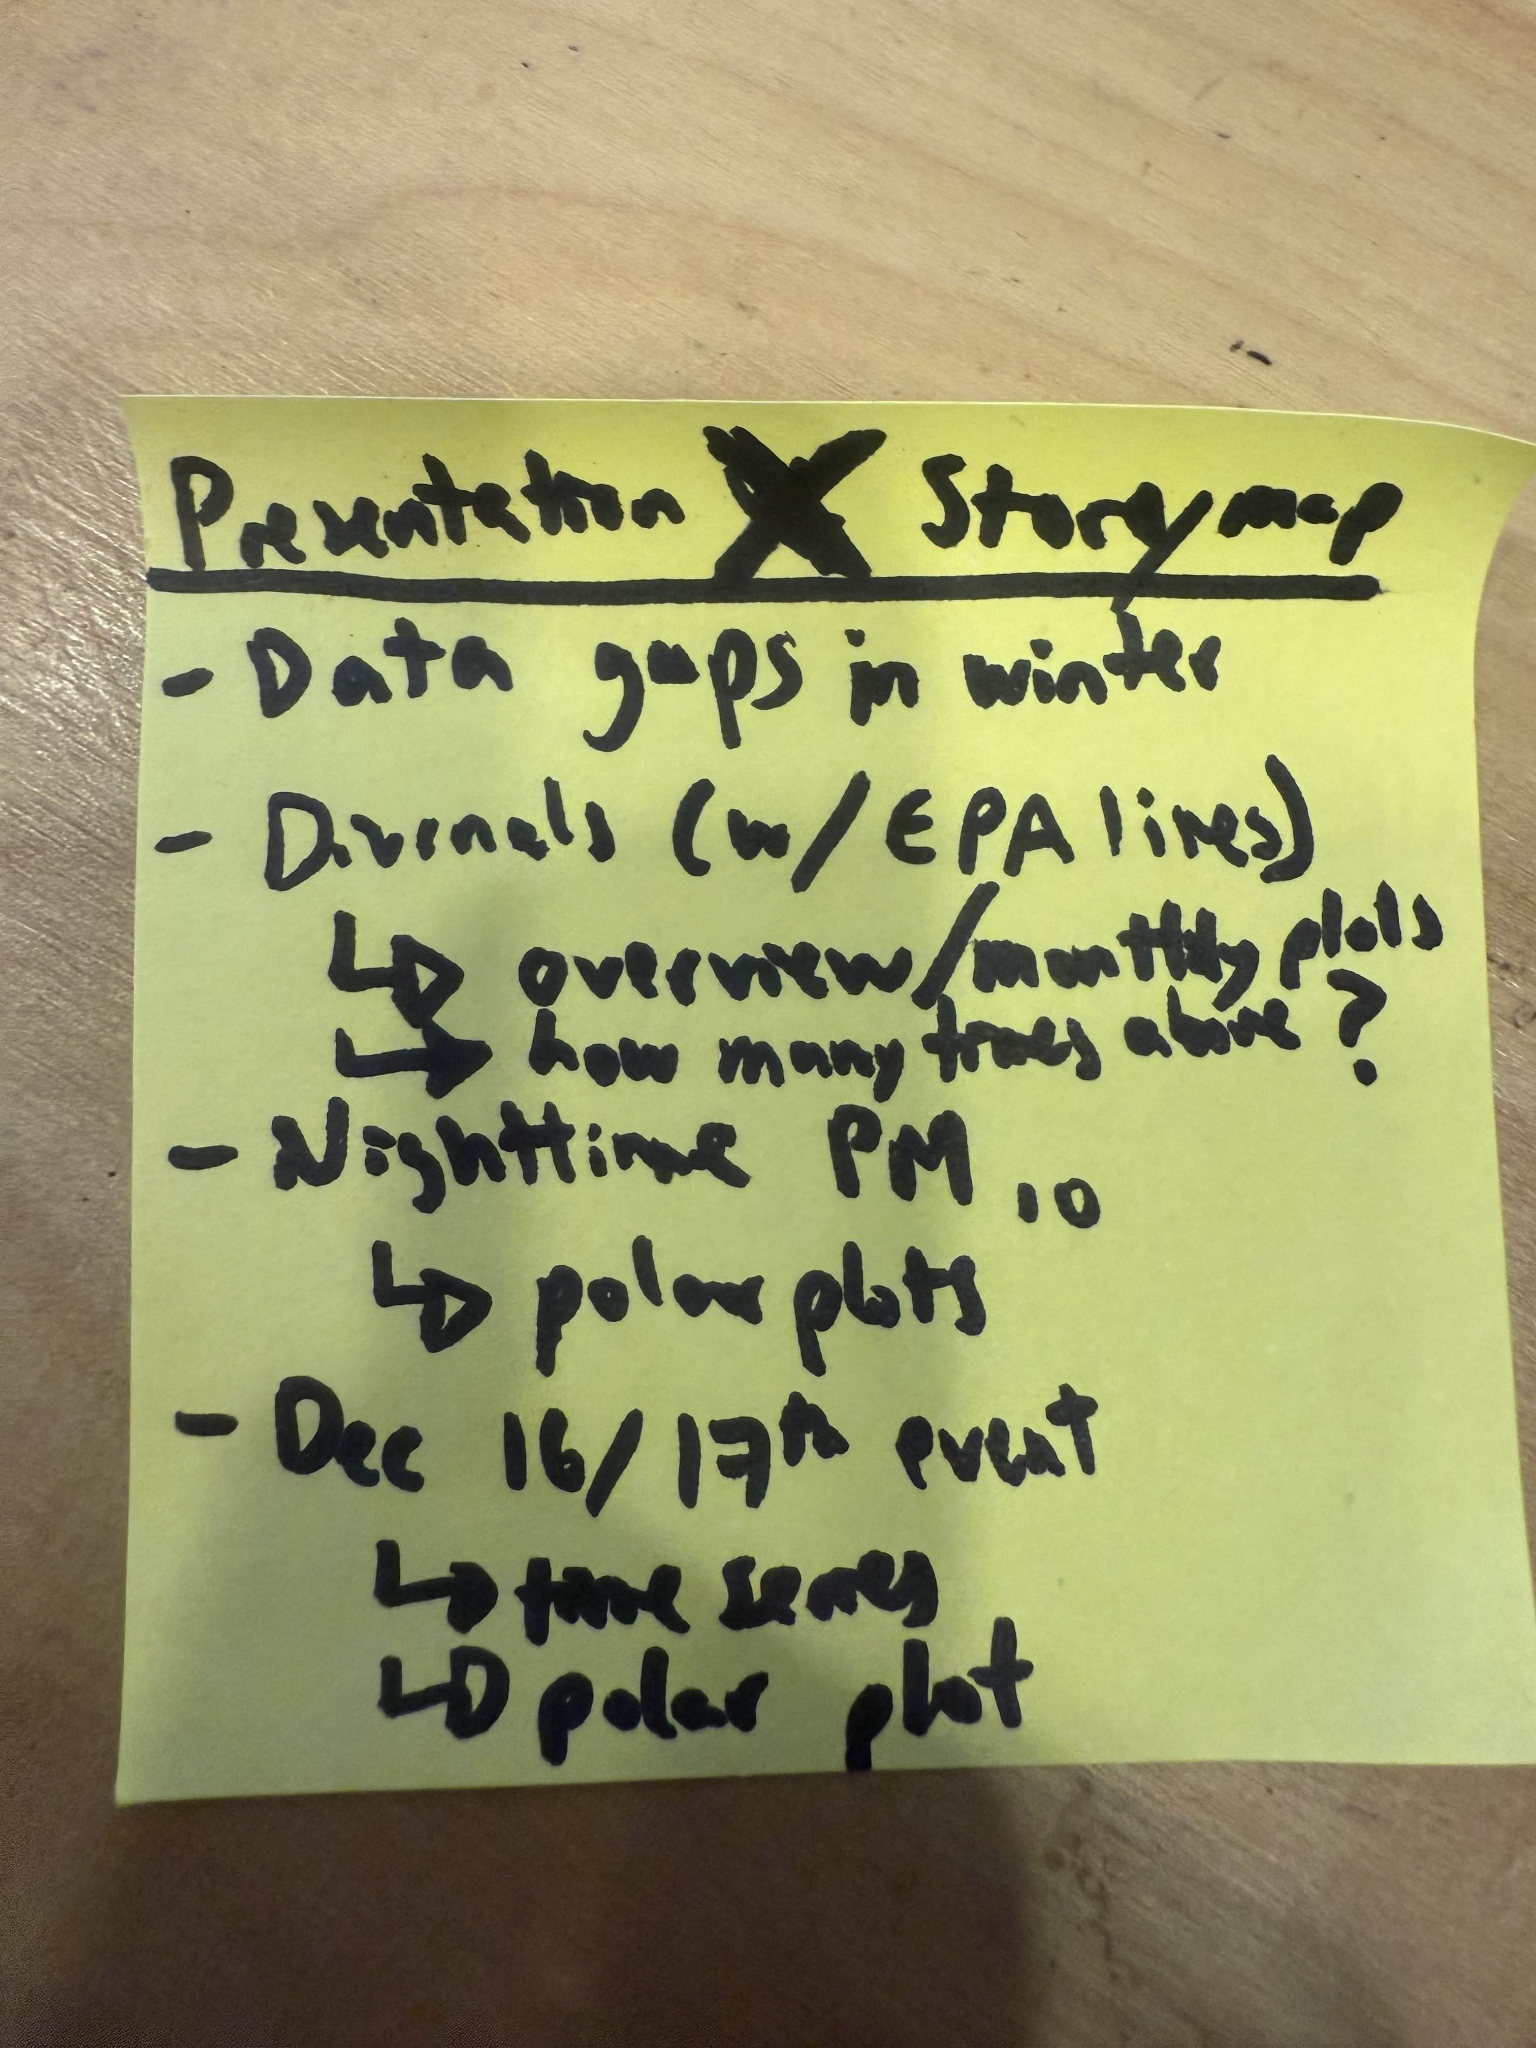 Presentation X Storymap
- Data gaps in winter
- Diurnals (w/ EPA lines)
↳ overview/monthly plots
↳ how many times above?
- Nighttime PM 10
↳ polar plots
- Dec 16/17th event
↳ time series
↳ polar plot